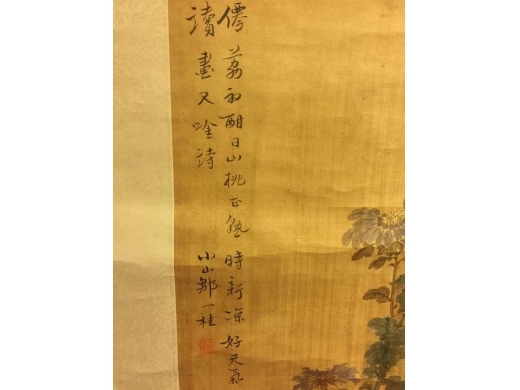 僊荔初酣日山桃正熟時新涼好天氣
讀畫又唫詩
小山鄒一桂